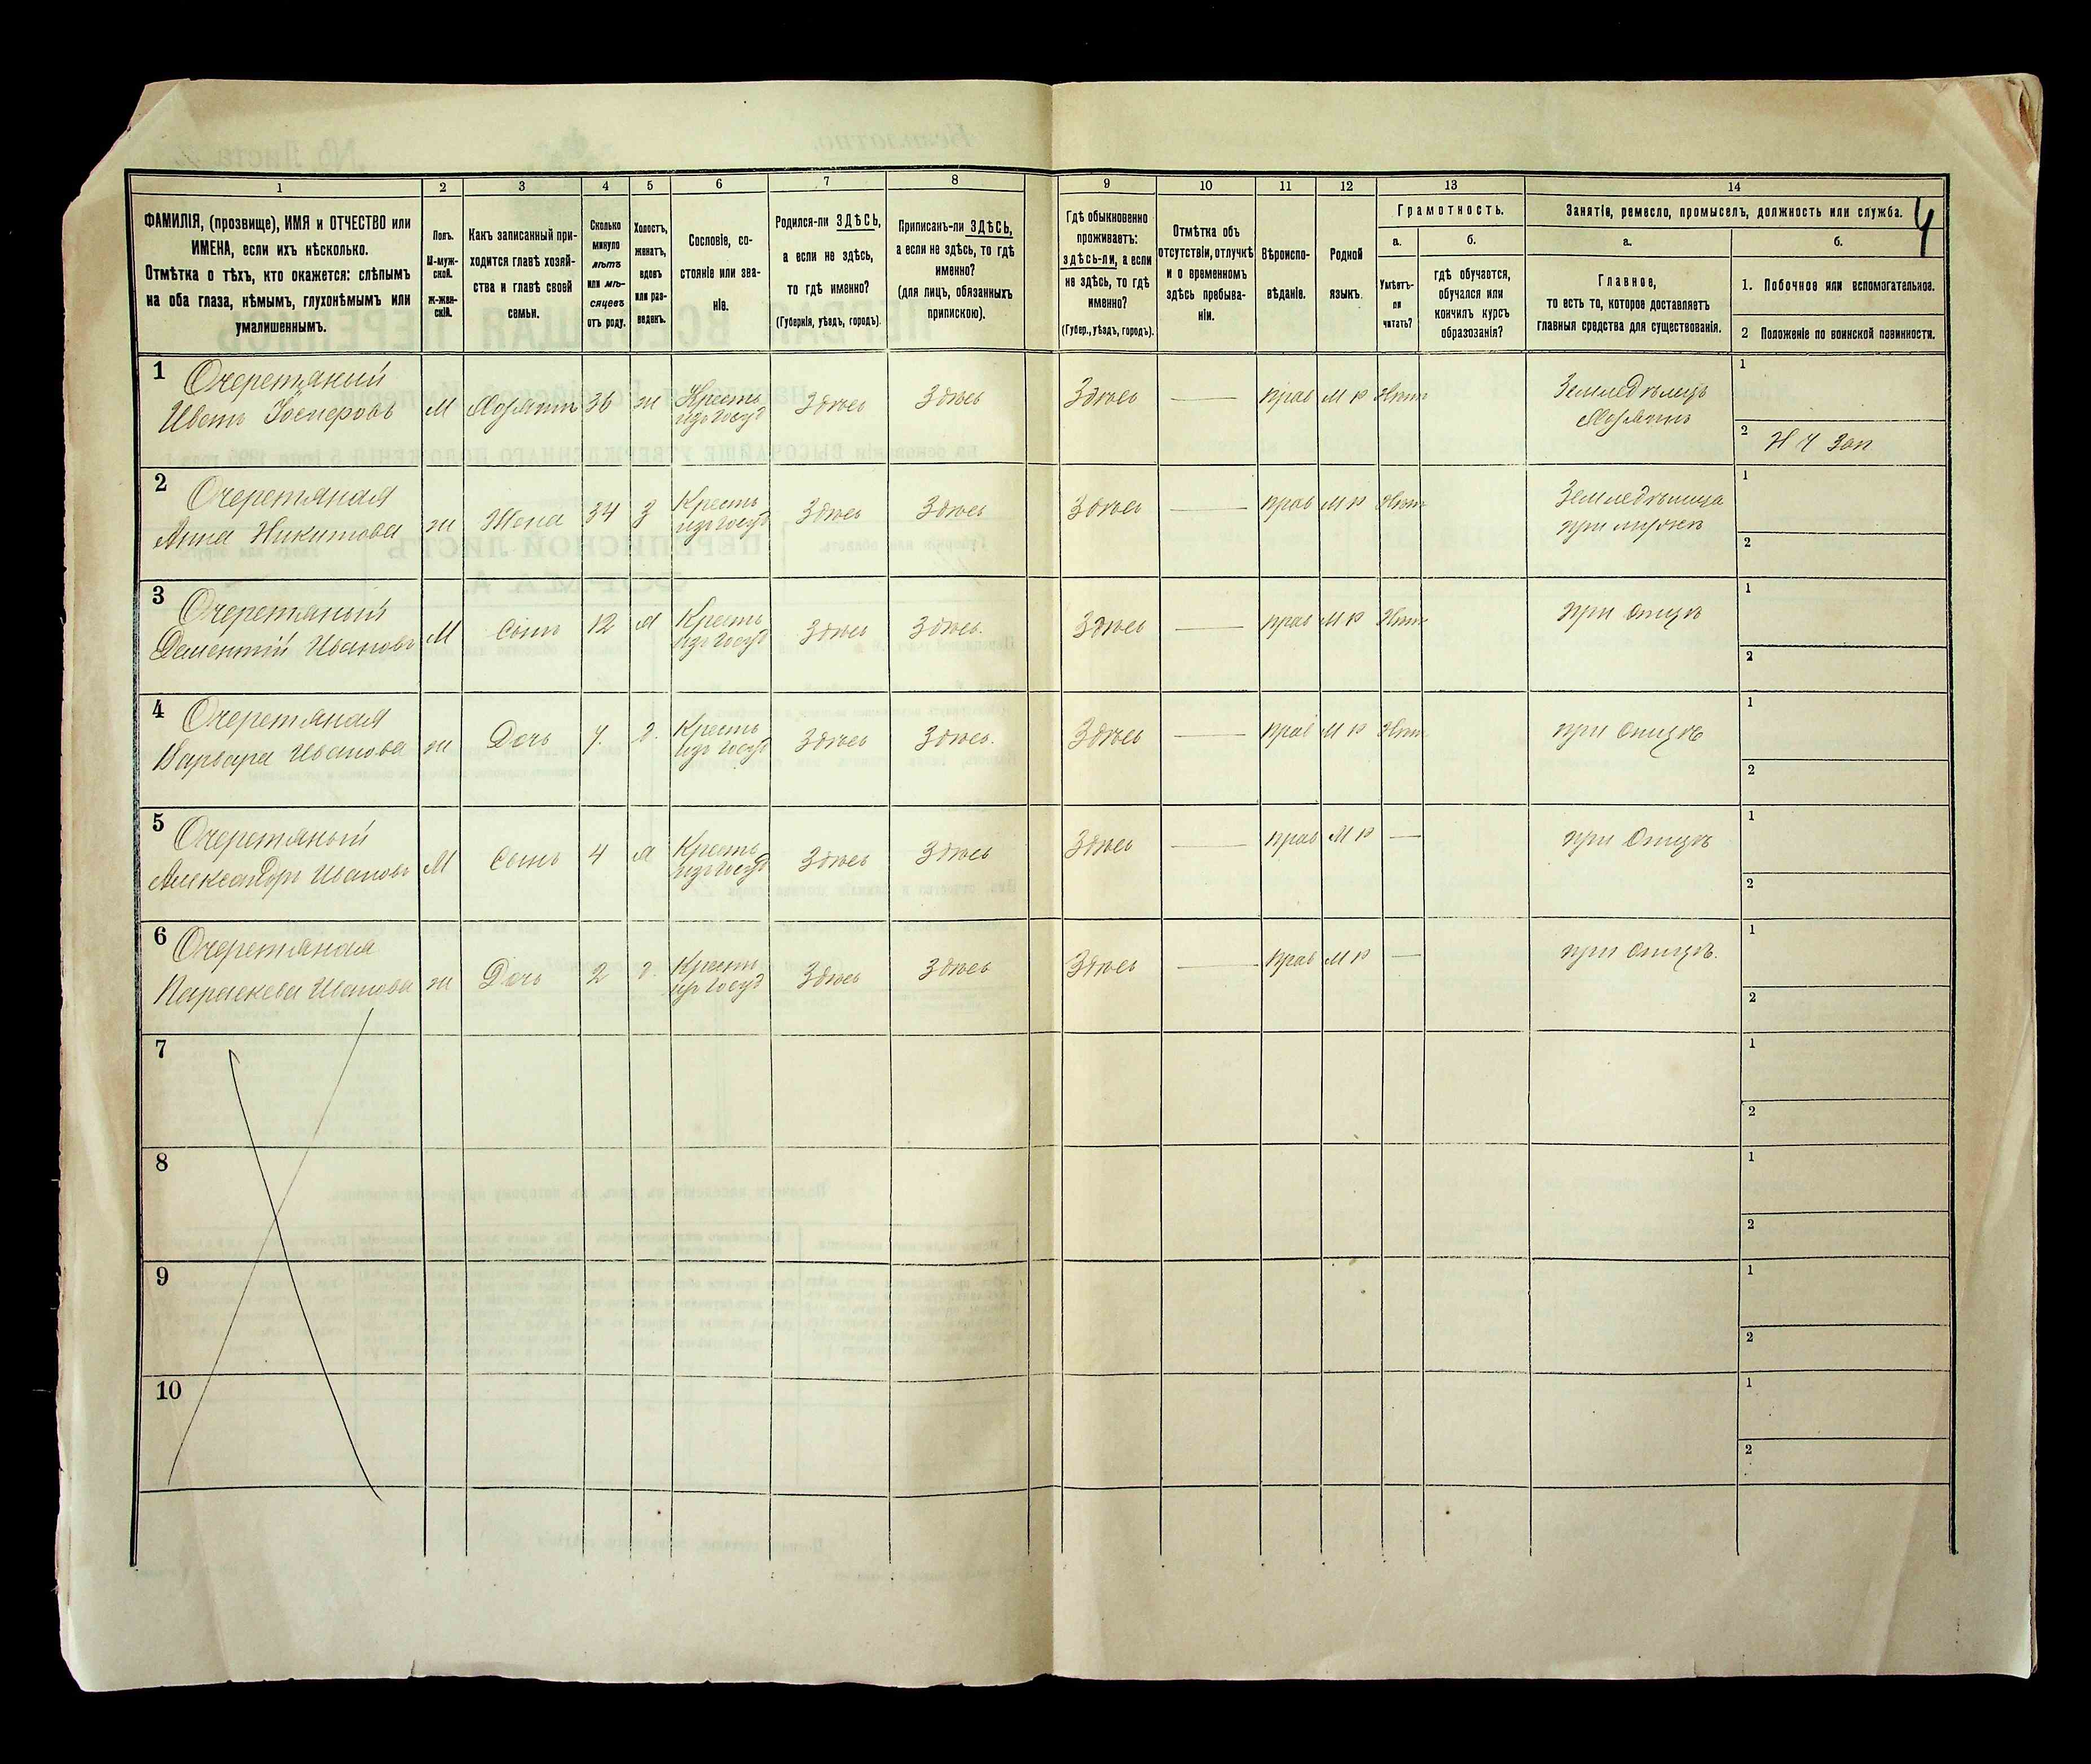 4
1 2 3 4 5 6 7 8 9 10 11 12 13 14
ФАМИЛІЯ, (прозвище), ИМЯ и ОТЧЕСТВО или
ИМЕНА, если ихъ нѣсколько.
Отмѣтка о тѣхъ, кто окажется: слѣпымъ
на оба глаза, нѣмымъ, глухонѣмымъ или
умалишеннымъ.
Полъ.
М-муж-
ской.
Ж-жен-
скій.
Какъ записанный при-
ходится главѣ хозяй-
ства и главѣ своей
семьи.
Сколько
минуло
лѣтъ
или мѣ-
сяцевъ
отъ роду.
Холостъ,
женатъ,
вдовъ
или раз-
веденъ.
Сословіе, со-
стояніе или зва-
ніе.
Родился-ли ЗДѢСЬ,
а если не здѣсь,
то гдѣ именно?
(Губернія, уѣздъ, городъ).
Приписанъ-ли ЗДѢСЬ,
а если не здѣсь, то гдѣ
именно?
(для лицъ, обязанныхъ
припискою).
Гдѣ обыкновенно
проживаетъ:
здѣсь-ли, а если
не здѣсь, то гдѣ
именно?
(Губер., уѣздъ, городъ).
Отмѣтка объ
отсутствіи, отлучкѣ
и о временномъ
здѣсь пребыва-
ніи.
Вѣроиспо-
вѣданіе.
Родной
языкъ.
Грамотность.
а.
Умѣетъ-
ли
читать?
б.
гдѣ обучается,
обучался или
кончилъ курсъ
образованія?
Занятіе, ремесло, промыселъ, должность или служба.
а.
Главное,
то есть то, которое доставляетъ
главныя средства для существованія.
б.
1. Побочное или вспомогательное.
2 Положеніе по воинской повинности.
1 Очеретяный
Иванъ
М Хозяинъ 36 ж Кресть
изъ Госуд
Здѣсь Здѣсь Здѣсь — прав М р Нѣтъ Земледѣлецъ
Хозяинъ
1
2 Н Ч Зап
2 Очеретяная
Анна Никитова
ж Жена 34 З Кресть
изъ Госуд
Здѣсь Здѣсь Здѣсь — прав М р Нѣтъ Земледѣлица
при мужѣ
1
2
3 Очеретяный
Дементій Ивановъ
М Сынъ 12 Х Кресть
изъ Госуд
Здѣсь Здѣсь. Здѣсь — прав М р Нѣтъ при Отцѣ
1
2
4 Очеретяная
Варвара Иванова
ж Дочь 7. д. Кресть
изъ Госуд
Здѣсь Здѣсь. Здѣсь — прав М р Нѣтъ при Отцѣ
1
2
5 Очеретяный
Александръ Ивановъ
М Сынъ 4 Х Кресть
изъ Госуд
Здѣсь Здѣсь Здѣсь — прав М р — при Отцѣ
1
2
6 Очеретяная
Параскева Иванова
ж Дочь 2 д. Кресть
изъ Госуд
Здѣсь Здѣсь Здѣсь — прав М р — при Отцѣ.
1
2
7
1
2
8
1
2
9
1
2
10
1
2